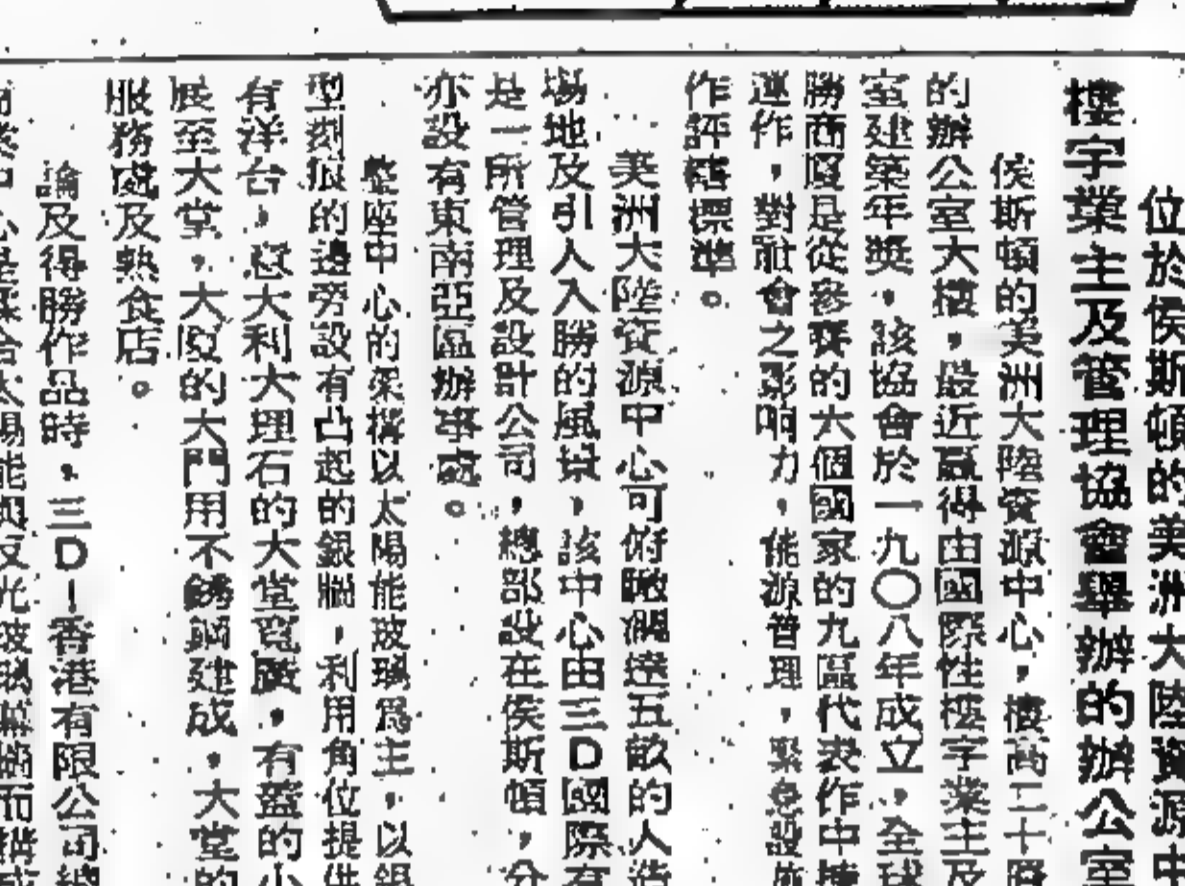 位於侯斯頓的美洲大陸資源中
樓宇業主及管理協會舉辦的辦公室
侯斯頓的美洲大陸資源中心，樓高二十層
的辦公室大樓，最近贏得由國際性樓宇業主及
室建築年獎。該協會於一九〇八年成立，全球
勝商廈是從參賽的六個國家的九區代表作中
運作，對社會之影响力，能源管理，緊急設施
作評標準。
美洲大陸資源中心可俯瞰濶達五畝的人造
場地及引人入勝的風景，該中心由三D國際有
是一所管理及設計公司，總部設在侯斯頓，分
亦設有東南亞區辦事處。
整座中心的架構以太陽能玻璃爲主，以銀
型刻痕的邊旁設有凸起的銀，利用角位提供
有洋台，意大利大理石的大堂寬濶，有蓋的小
展至大堂。大廈的大門用不銹鋼建成。大堂的
服務處及熱食店。
論及得勝作品時，三D－香港有限公司總
中心是揉合太陽能與反光玻璃幕牆而構成